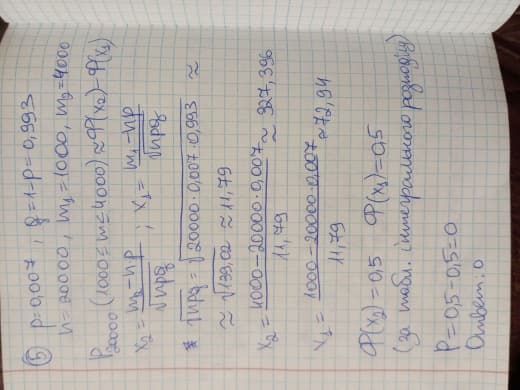 ⑤ p=0,007 ; q=1-p=0,993
n=20000, m₁=1000, m₂=4000
P₂₀₀₀₀(1000≤m≤4000)≈Φ(x₂)-Φ(x₁)
x₂=(m₂-np)/√npq ; x₁=(m₁-np)/√npq
* √npq=√20000·0,007·0,993 ≈
≈√139,02≈11,79
x₂=(4000-20000·0,007)/11,79≈327,396
x₁=(1000-20000·0,007)/11,79≈72,94
Φ(x₂)=0,5 Φ(x₁)=0,5
(за табл. інтегрального розподілу)
P=0,5-0,5=0
Ответ: 0